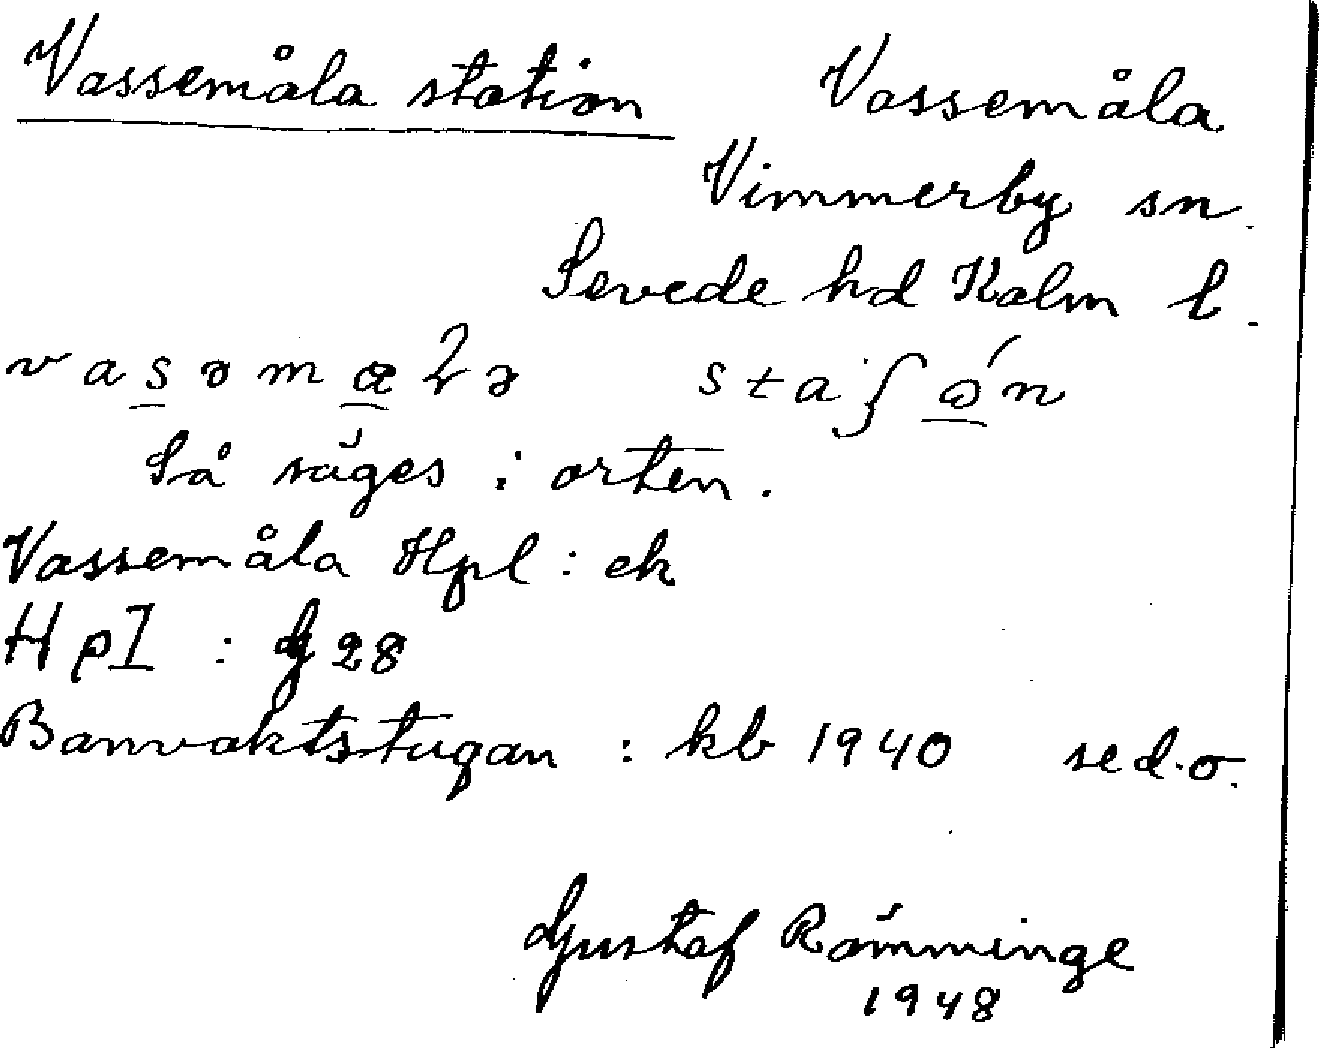 Vassemåla station Vassemåla
Vimmerby sn.
Sevede hd Kalm l.
Så säges i orten.
Vassemåla Hpl : ek
HpI : G 28
Banvaktstugan : kb 1940 se d.o.
Gustaf Römminge
1948